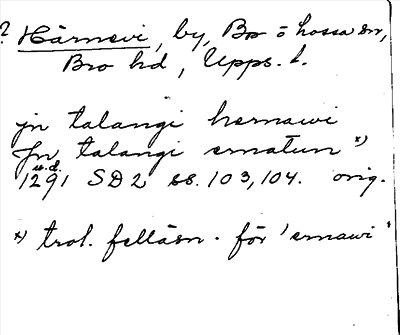 ? Härnevi, by, Bro o lossa sn,
Bro hd, Upps. l.
jn talangi hernawi
Jn talangi ernatum x)
u.d.
1291 SD 2 ss. 103, 104. orig.
x) trol. felläsn. för 'ernawi'